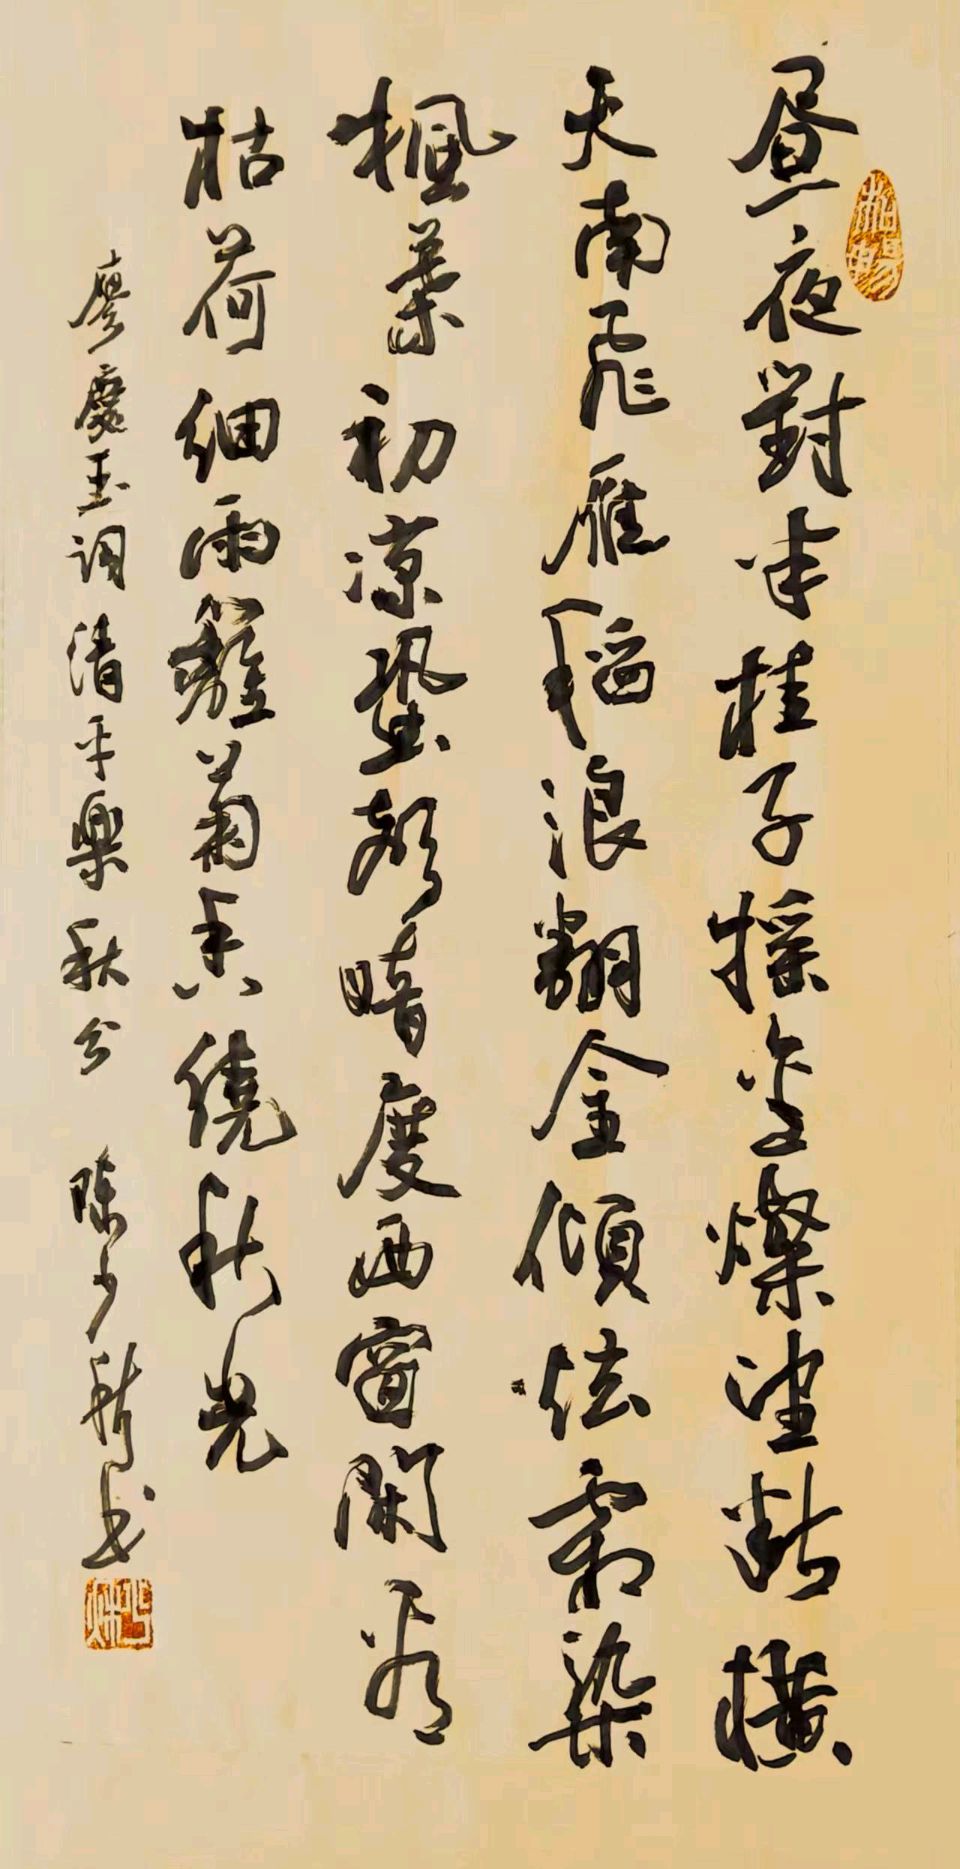 昼夜對半桂子摇金燦望斷橫
天南飛雁稻浪翻金傾炫霜染
楓葉初涼蛩聲暗度西窗閑看
枯荷細雨籬菊香繞秋光
廖慶玉詞清平樂秋分 陳少新書